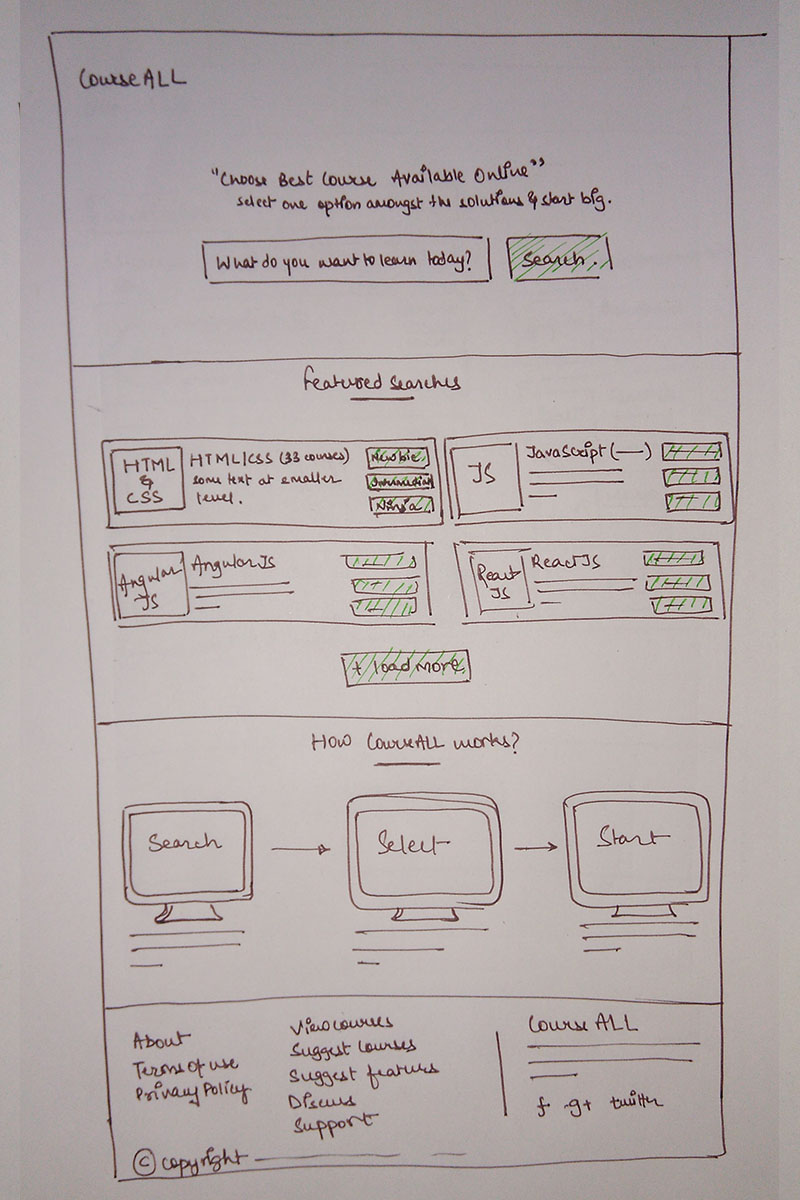 CourseALL
"Choose Best Course Available Online"
select one option amongst the solutions & start big.
What do you want to learn today?
Search.
Featured searches
HTML
&
CSS
HTML/CSS (33 courses)
some text at smaller
level.
Newbie
Intermediate
Ninja
JS
JavaScript (—)
Angular
JS
AngularJS
React
JS
ReactJS
+ load more
How CourseALL works?
Search
Select
Start
About
Terms of use
Privacy Policy
View courses
Suggest courses
Suggest features
Discuss
Support
Course ALL
f g+ twitter
© copyright